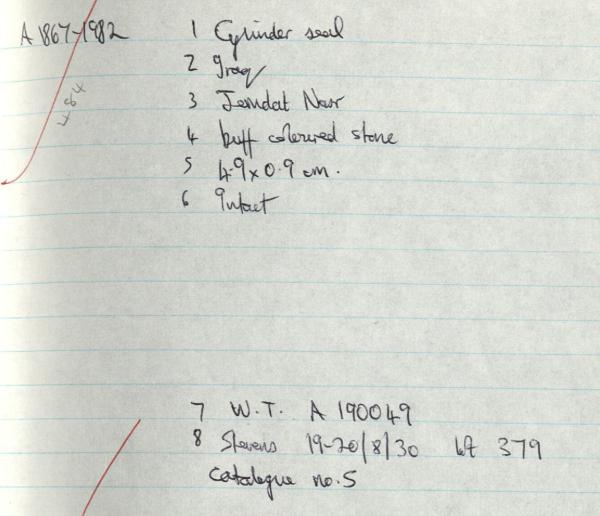 A 1867-1982
1 Cylinder seal
2 Iraq
3 Jemdat Nasr
4 buff coloured stone
5 4.9 x 0.9 cm.
6 Intact
484
7 W.T. A 190049
8 Stevens 19-20/8/30 lot 379
Catalogue no. 5